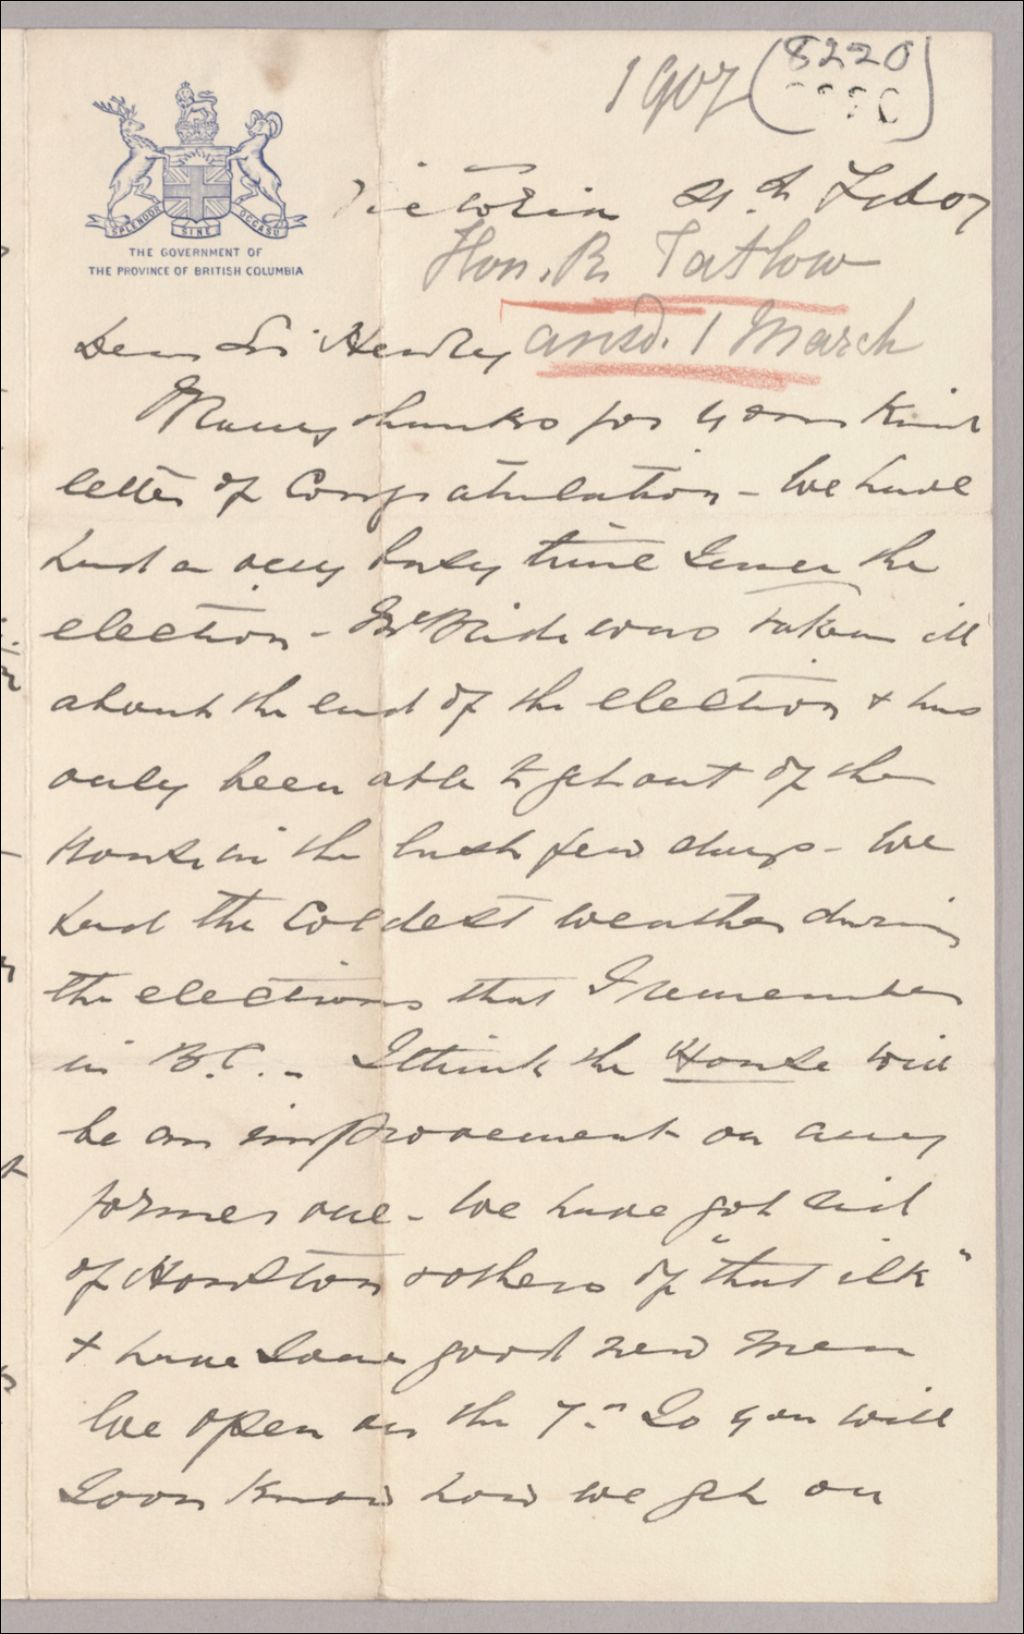 1907 (8220)
SPLENDOR SINE OCCASU
THE GOVERNMENT OF
THE PROVINCE OF BRITISH COLUMBIA
Victoria Feb 07
Hon. R. Tatlow
ansd. 1 March
Dear Sir Henry
Many thanks for your kind
letter of Congratulation - We have
had a very busy time Since the
election - McBride was taken ill
about the end of the election & has
only been able to get out of the
House in the last few days - We
had the Coldest weather during
the elections that I remember
in B.C. - I think the House will
be an improvement on any
former one - We have got rid
of Houston & others of "that ilk"
& have Some good new men
We open on the 7th So you will
Soon Know how we get on